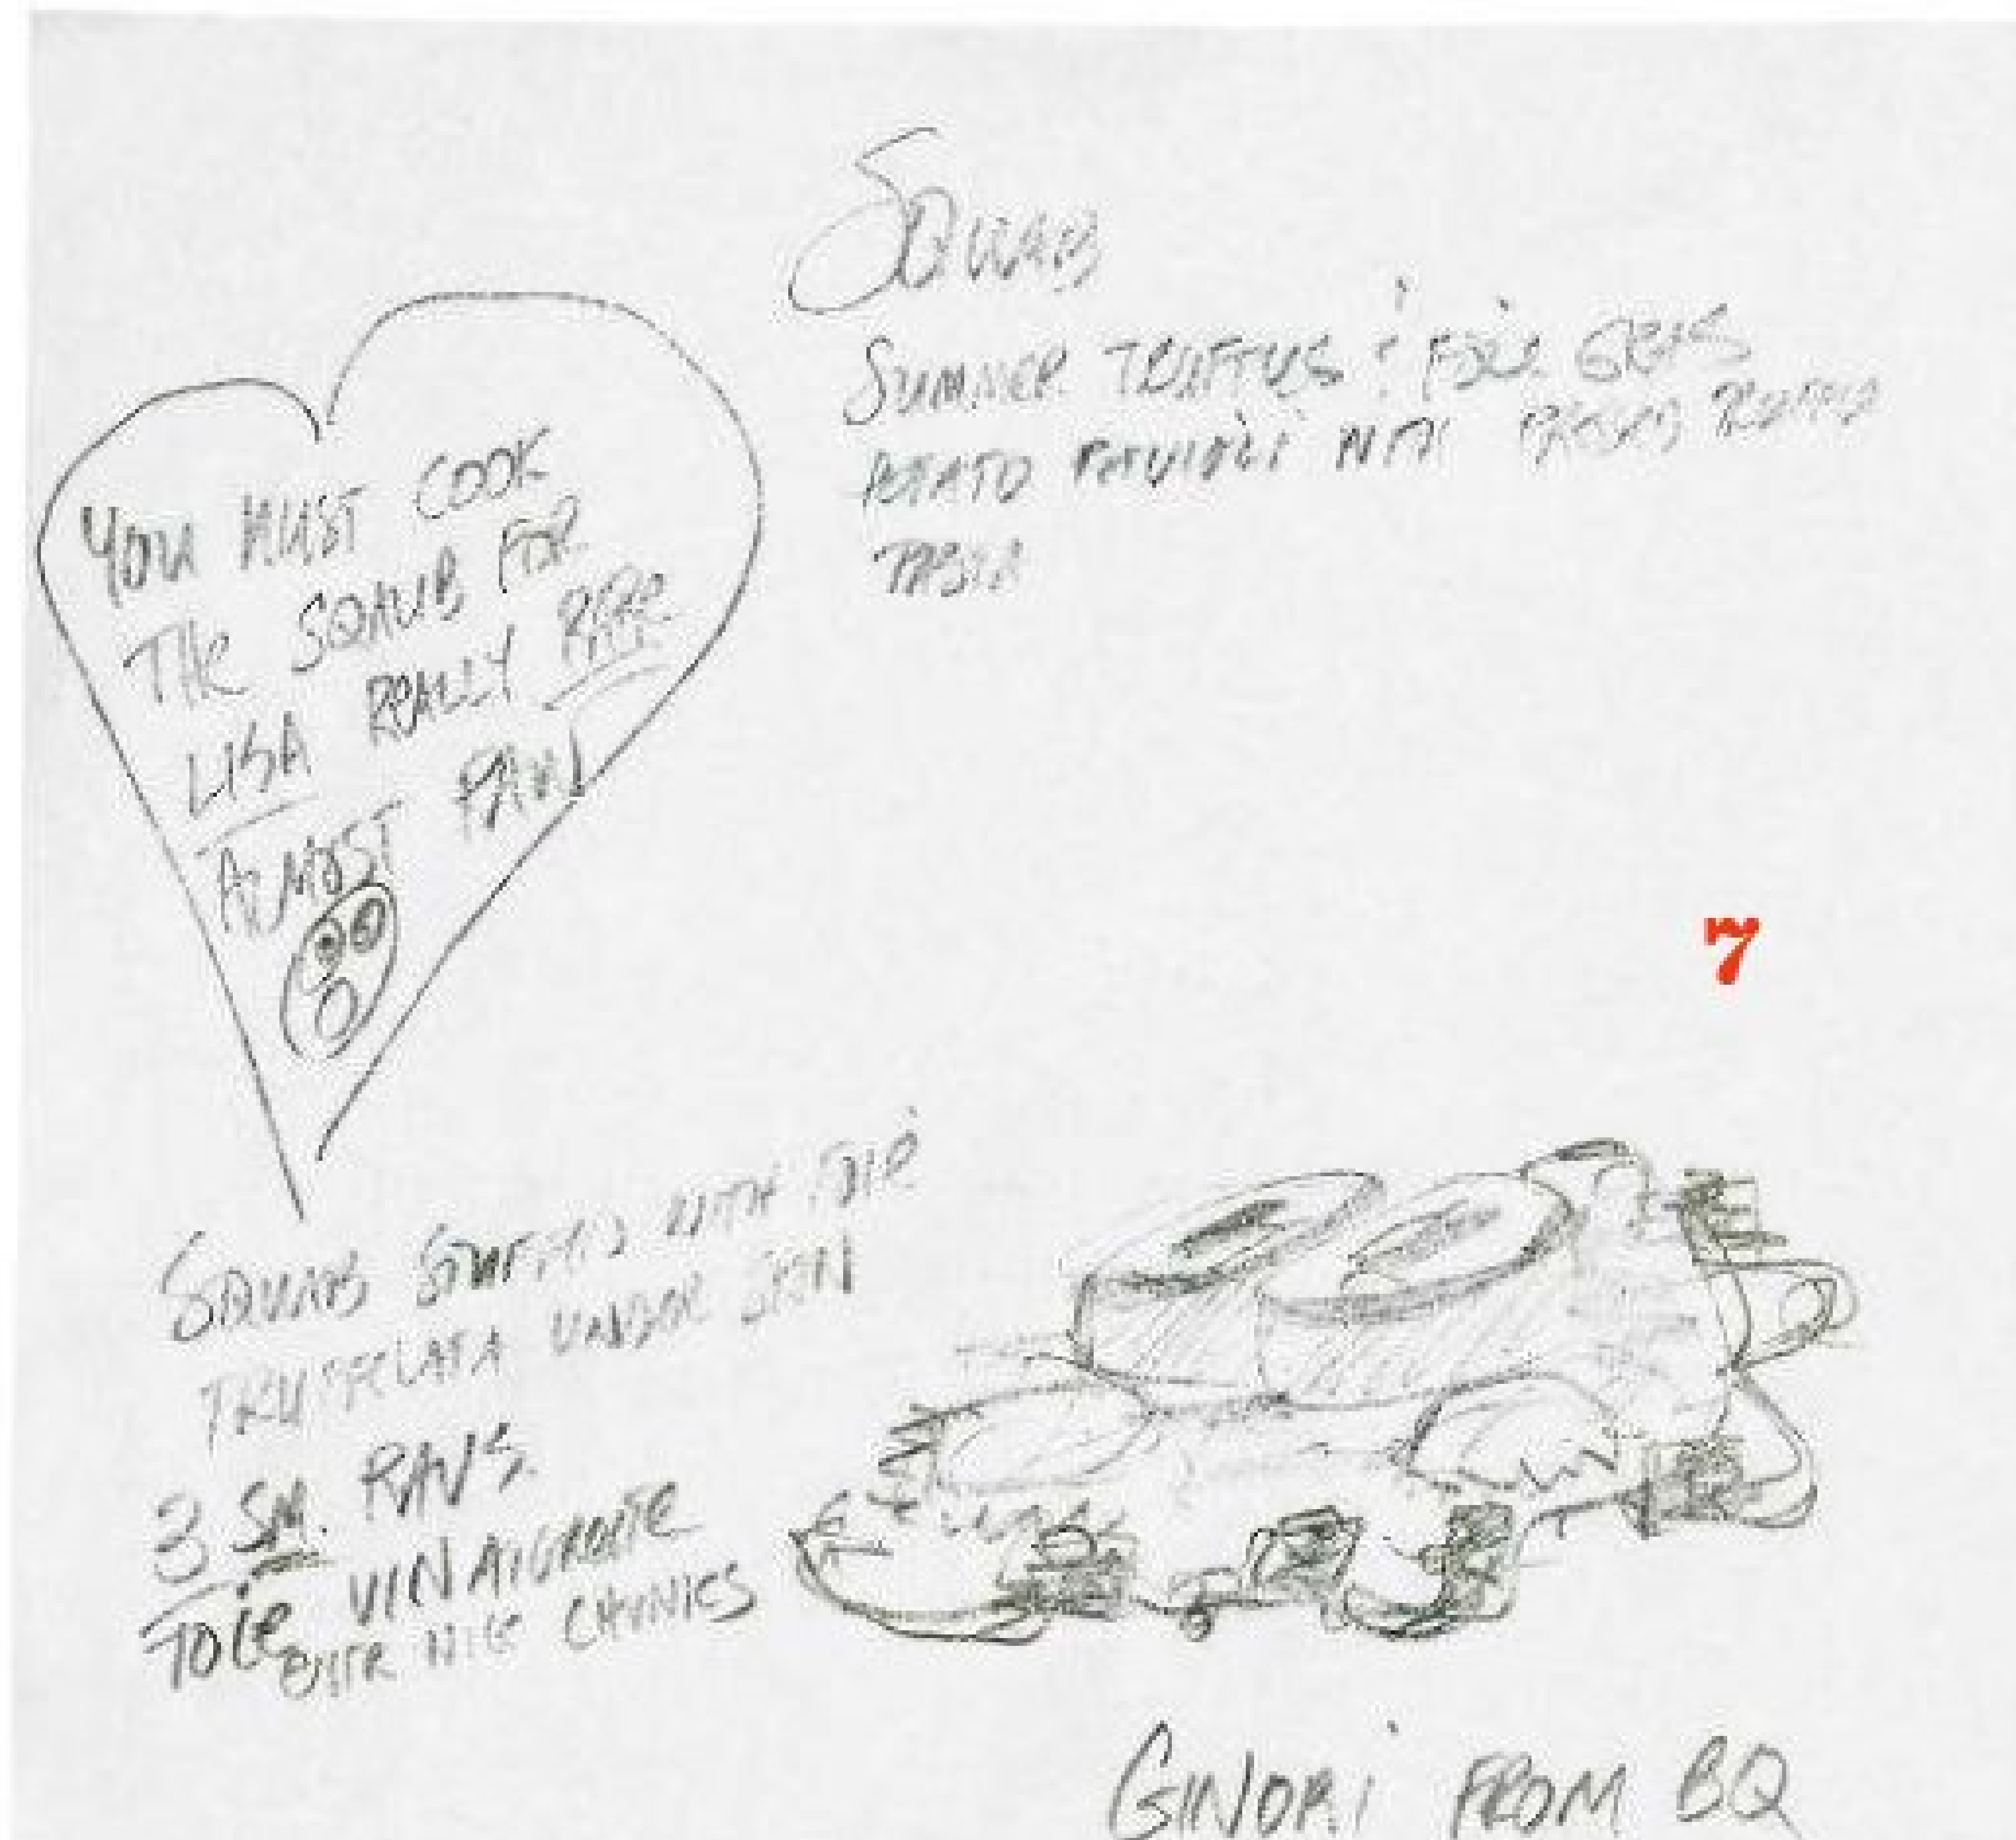 SQUAB
SUMMER TRUFFLES & FOIE GRAS
POTATO RAVIOLI WITH
PASTA
YOU MUST COOK
THE SQAUB FOR
LISA REALLY RARE
ALMOST RAW
7
SQUAB STUFFED WITH FOIE
TRUFFLATA UNDER SKIN
3 SM. RAVS.
FOIE VINAIGRETTE
OVER NICE CHUNKS
GINORI FROM BQ